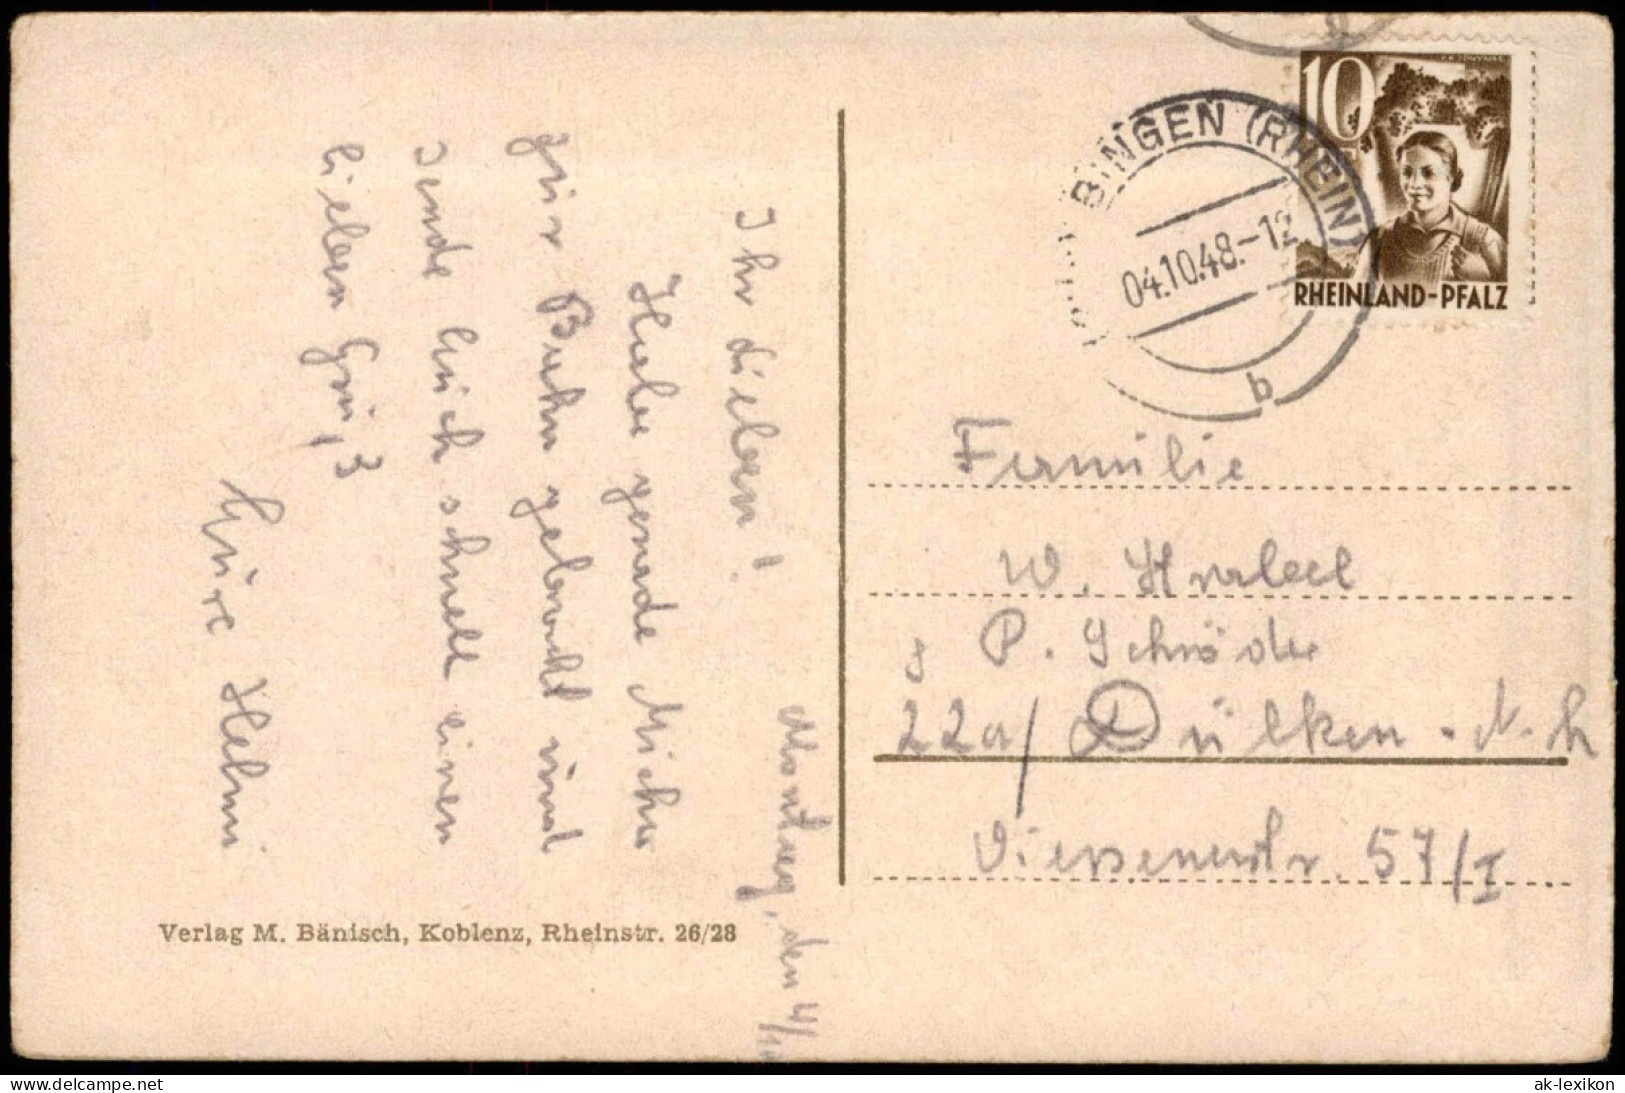 Montag, den 4/10
Ihr Lieben!
Habe gerade Micha
zur Bahn gebracht und
sende Euch schnell einen
lieben Gruß
Eure Helmi
Verlag M. Bänisch, Koblenz, Rheinstr. 26/28
10
RHEINLAND-PFALZ
BINGEN (RHEIN)
04.10.48.-12
b
Familie
W.
P. Schröder
22a/ Dülken - N.
57/I
www.delcampe.net
ak-lexikon